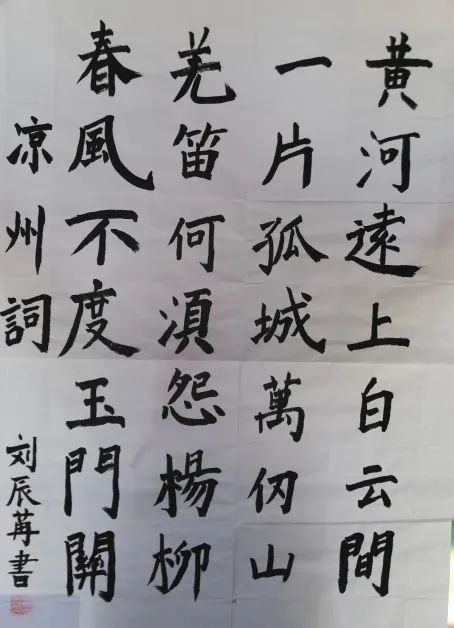 黄河遠上白云間
一片孤城萬仞山
羌笛何湏怨楊柳
春風不度玉門關
凉州詞
刘辰苒書